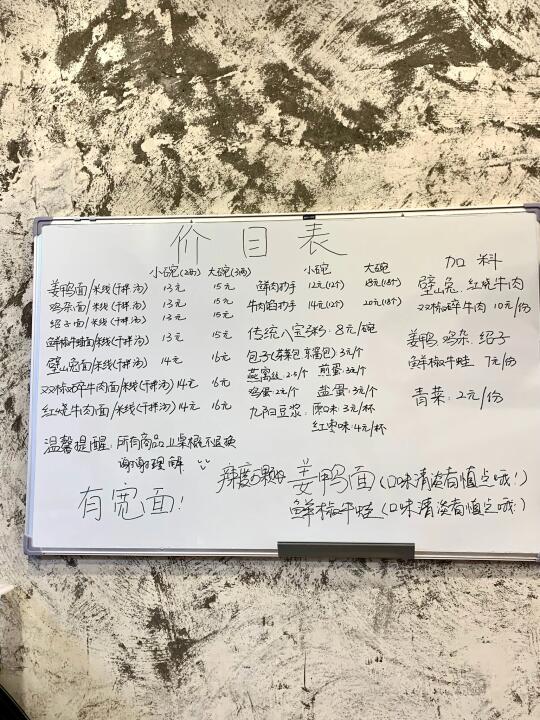 价目表
小碗(2两) 大碗(3两)
姜鸭面/米线(干拌汤) 13元 15元
鸡杂面/米线(干拌汤) 13元 15元
绍子面/米线(干拌汤) 13元 15元
鲜椒牛蛙面/米线(干拌汤) 13元 15元
壁山兔面/米线(干拌汤) 14元 16元
双椒碎牛肉面/米线(干拌汤) 14元 16元
红烧牛肉面/米线(干拌汤) 14元 16元
小碗 大碗
鲜肉抄手 12元(12个) 18元(18个)
牛肉馅抄手 14元(12个) 20元(18个)
传统八宝粥: 8元/碗
包子(夯菜包 夯酱包) 3元/个
蒸窝丝 2.5/个 煎蛋 3元/个
鸡蛋: 2元/个 盐蛋: 3元/个
九阳豆浆: 原味: 3元/杯
红枣味: 4元/杯
加料
壁山兔, 红烧牛肉
双椒碎牛肉 10元/份
姜鸭 鸡杂 绍子
鲜椒牛蛙 7元/份
青菜: 2元/份
温馨提醒: 所有商品上桌概不退换
谢谢理解
有宽面!
辣度5颗的 姜鸭面(口味清淡者慎点哦!)
鲜椒牛蛙(口味清淡者慎点哦!)